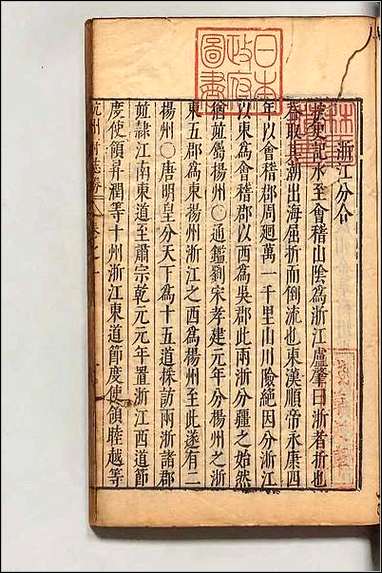 日本
政府
圖書
浙江分合
史記水至會稽山陰爲浙江盧肇曰浙者折也
葢取其潮出海屈折而倒流也東漢順帝永康四
年以會稽郡周廻萬一千里山川險絶因分浙江
以東爲會稽郡以西爲吳郡此兩浙分疆之始然
猶竝蜀揚州○通鑑劉宋孝建元年分楊州之浙
東五郡爲東揚州浙江之西爲楊州至此遂有二
楊州○唐明皇分天下爲十五道採訪兩浙諸郡
竝隸江南東道至肅宗乾元元年置浙江西道節
度使領昇潤等十州浙江東道節度使領睦越等
杭州府志